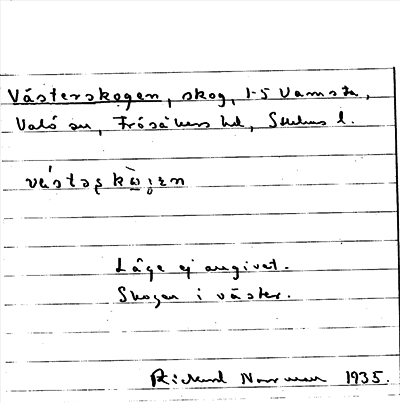 Västerskogen, skog, 1-5 Vamsta,
Valö sn, Frösåkers hd, Sthlms l.
Läge ej angivet.
Skogen i väster.
Rickard Norrman 1935.